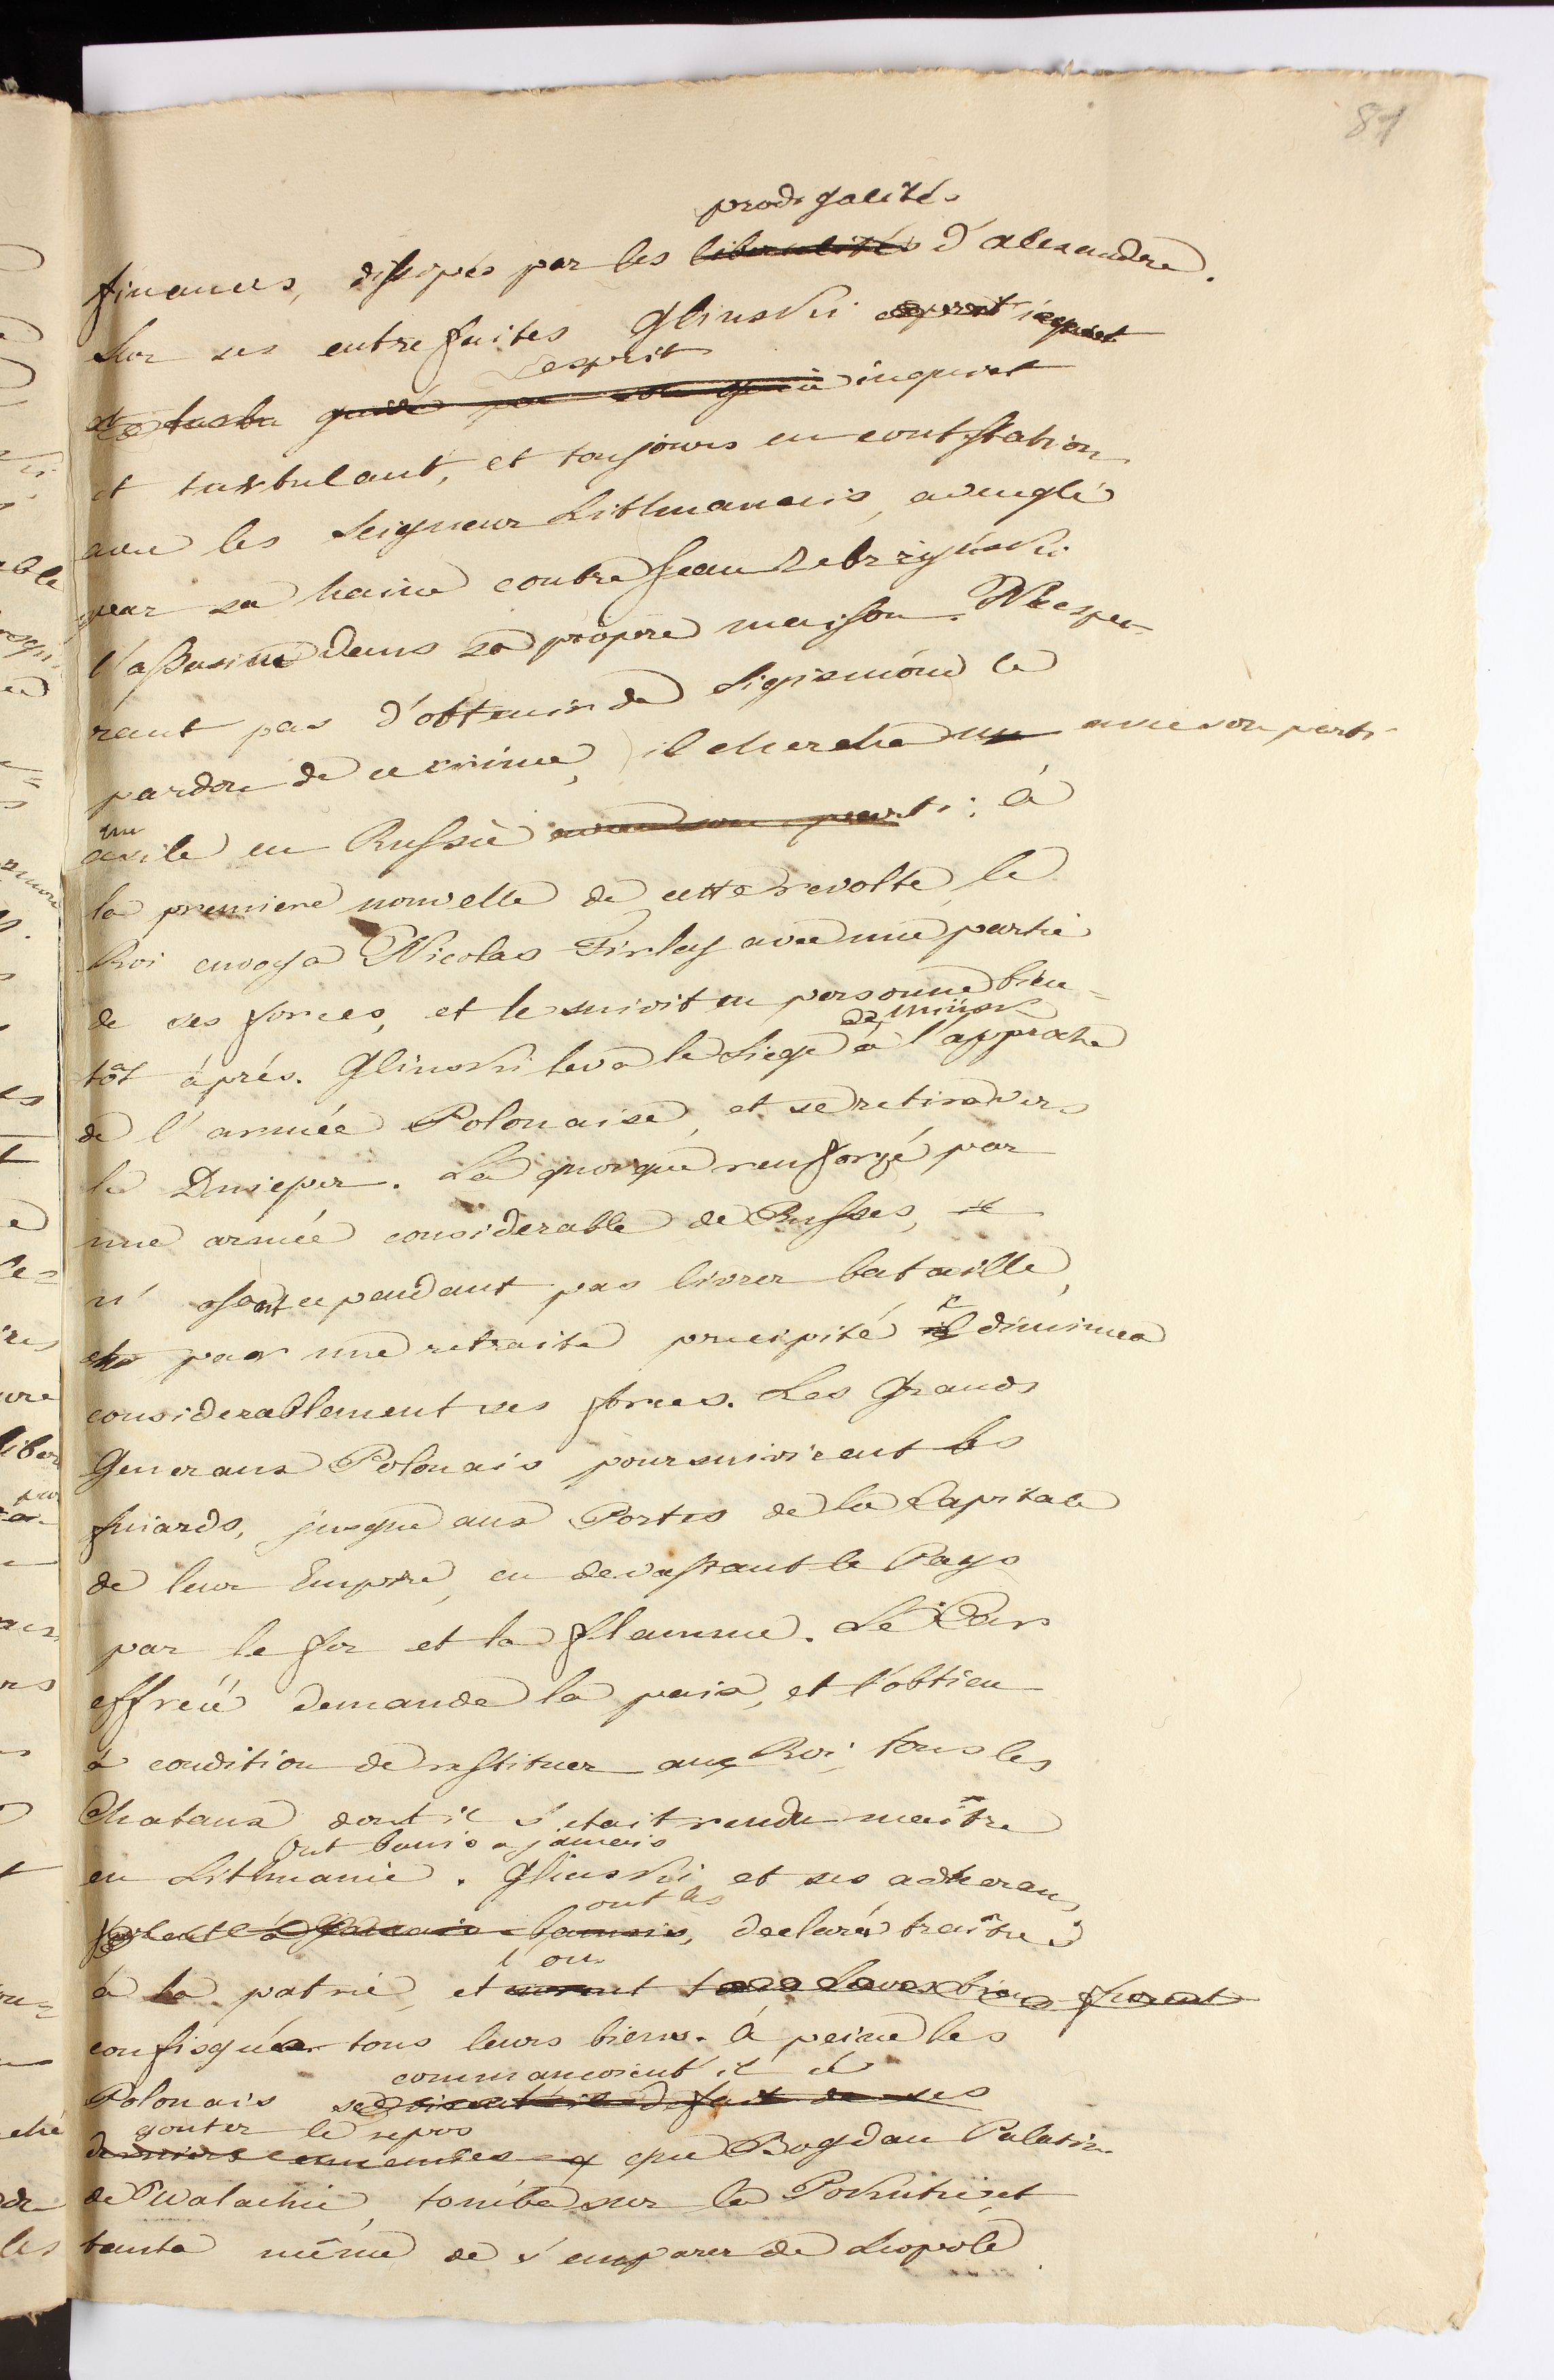 81
prodigalités
finances, dissipés par les liberalités d'alexandre.
Sur ses entrefaites Glinski esprit inquiet
esprit
et turbu guidé par son genie inquiet
et turbulant, et toujours en contestation
avec les Seigneur Lithuaneis, aveuglé
par sa haine contre Jean Zebrzyński
l'assasine dans sa propre maison. N'espe-
rant pas d'obtenir de Sigismond le
pardon de ce crime, il cherche un avec son parti
un
asile en Russie avec son parti; à
la premiere nouvelle de cette revolte, le
Roi envoya Nicolas Firley avec une partie
de ses forces, et le suivit en personne bien-
de Minsk
tôt àprés. Glinski leva le Siege à l'approche
de l'armée Polonaise, et se retira vers
le Dnieper. Là quoique renforçé par
une armée considerable de Russes, il
n'osant cependant pas livrer bataille,
par une retraite precipité il diminua
considerablement ses forces. Les Grands
Generaux Polonais poursuivirent les
fuiards, jusque aux Portes de la Capitale
de leur Empire, en devastant le Pays
par le fer et la flamme. Le Czar
effreié demande la paix, et l'obtien
à condition de restituer aux Roi, tous les
Chataux dont il s'etait rendu maître
fut banis a jamais
en Lithuanie. Glinski et ses adheran,
ont les
furent à jamais bannis, declaré traître
l'on
à la patrie, et tous leurs biens furent
confisqués tous leurs biens. à peine les
commancoient il à
Polonais se voient ils defait de ses
gouter le repos
derniers ennemies que Bogdan Palatin
de Walachie, tombe sur la Pokutie, et
tenta même de s'emparer de Léopole